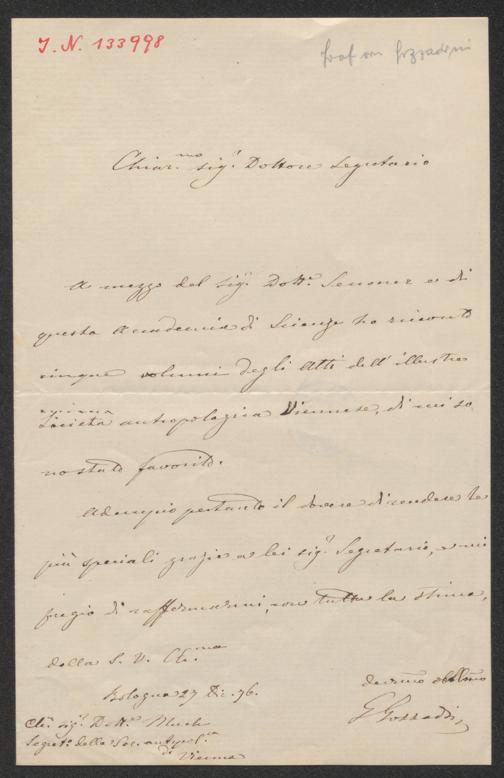 J. N. 133998
Prof von Gozzadini
Chiar.mo sig.r Dottore Segretario
A mezzo del sig.r Dott.r Senoner e di
questa Accademia di Scienze ho ricevuto
cinque volumi degli Atti dell'illustre
Società antropologica Viennese, di cui so
no stato favorito.
Adempio pertanto il dovere di rendere le
più speciali grazie a lei sig.r Segretario, e mi
pregio di raffermarmi, con tutta la stima,
della S. V. Ch.ma
Bologna 27 Dic. 76.
dev.mo obbl.mo
G Gozzadini
Ch. sig.r Dott.r Much
Segret.o della Soc. antropol.a
di Vienna